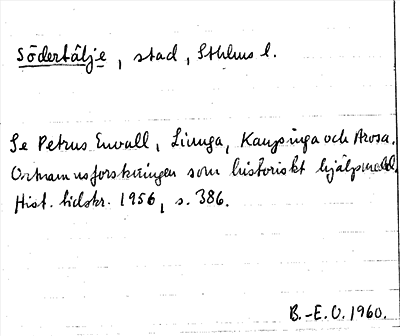 Södertälje, stad, Sthlms l.
Se Petrus Envall, Liunga, Kaupinga och Arosa.
Ortnamnsforskningen som historiskt hjälpmedel.
Hist. tidskr. 1956, s. 386.
B.-E. O. 1960.